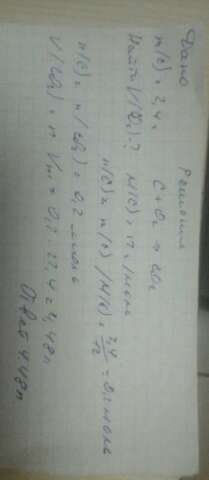 Дано Решение
m(C) = 2,4 г C + O₂ → CO₂
Найти V(CO₂)-? M(C) = 12 г/моль
n(C) = m(C) / M(C) = 2,4/12 = 0,2 моль
n(C) = n(CO₂) = 0,2 моль
V(CO₂) = n · Vm = 0,2 · 22,4 = 4,48л
Ответ 4.48л